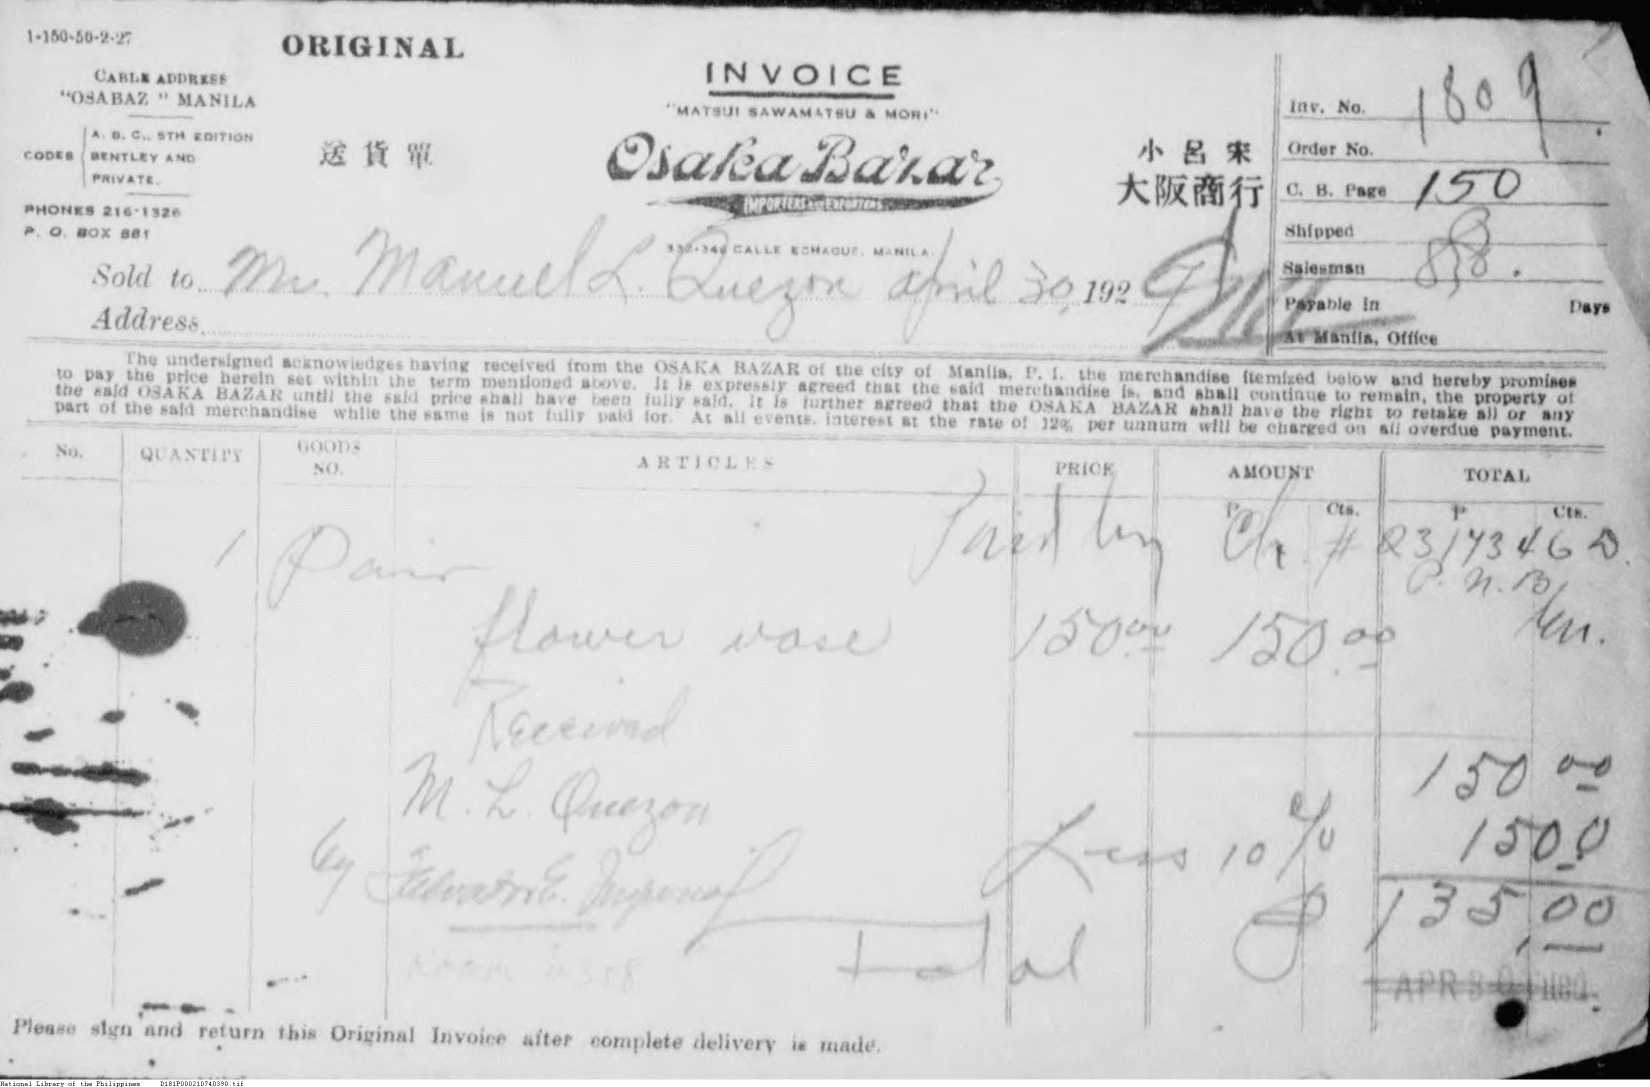 1-150-50-2-27
ORIGINAL
CABLE ADDRESS
"OSABAZ" MANILA
CODES
A. B. C., 5TH EDITION
BENTLEY AND
PRIVATE.
PHONES 216-1326
P. O. BOX 881
送貨單
INVOICE
"MATSUI SAWAMATSU & MORI"
Osaka Bazar
IMPORTERS and EXPORTERS
332-346 CALLE ECHAGUE, MANILA.
小呂宋
大阪商行
Inv. No. 1809
Order No.
C. B. Page 150
Shipped
Salesman
Payable in Days
At Manila, Office
Sold to Mr. Manuel L. Quezon April 30, 1929
Address
The undersigned acknowledges having received from the OSAKA BAZAR of the city of Manila, P. I. the merchandise itemized below and hereby promises
to pay the price herein set within the term mentioned above. It is expressly agreed that the said merchandise is, and shall continue to remain, the property of
the said OSAKA BAZAR until the said price shall have been fully said. It is further agreed that the OSAKA BAZAR shall have the right to retake all or any
part of the said merchandise while the same is not fully paid for. At all events, interest at the rate of 12% per unnum will be charged on all overdue payment.
No. QUANTITY GOODS NO. ARTICLES PRICE AMOUNT TOTAL
P Cts. P Cts.
Paid by Ch. # 2317346 D
P. N. B.
1 Pair
flower vase 150.00 150.00
Received
150 00
M. L. Quezon
Less 10 % 15 00
by
₱ 135.00
Total
APR 30
Please sign and return this Original Invoice after complete delivery is made.
National Library of the Philippines D181P00021074,0390.tif